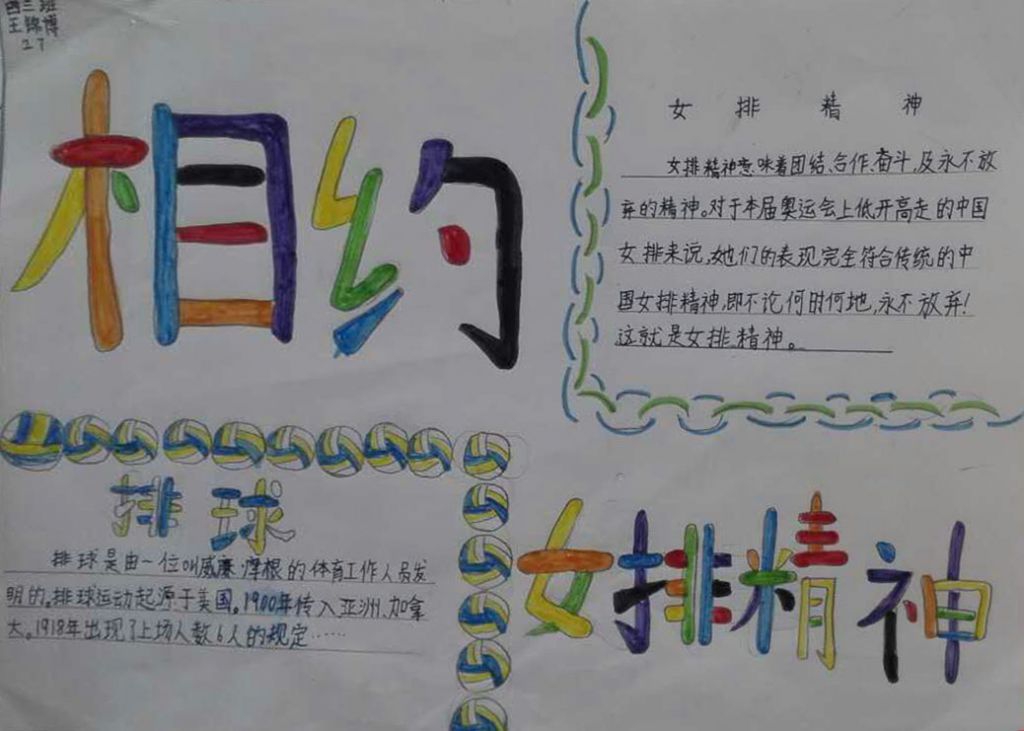 四三班
王锦博
27
相约
女排精神
女排精神意味着团结、合作、奋斗,及永不放
弃的精神。对于本届奥运会上低开高走的中国
女排来说,她们的表现完全符合传统的中
国女排精神,即不论何时何地,永不放弃!
这就是女排精神。
排球
排球是由一位叫威廉·摩根的体育工作人员发
明的。排球运动起源于美国。1900年传入亚洲、加拿
大。1918年出现了上场人数6人的规定……
女排精神